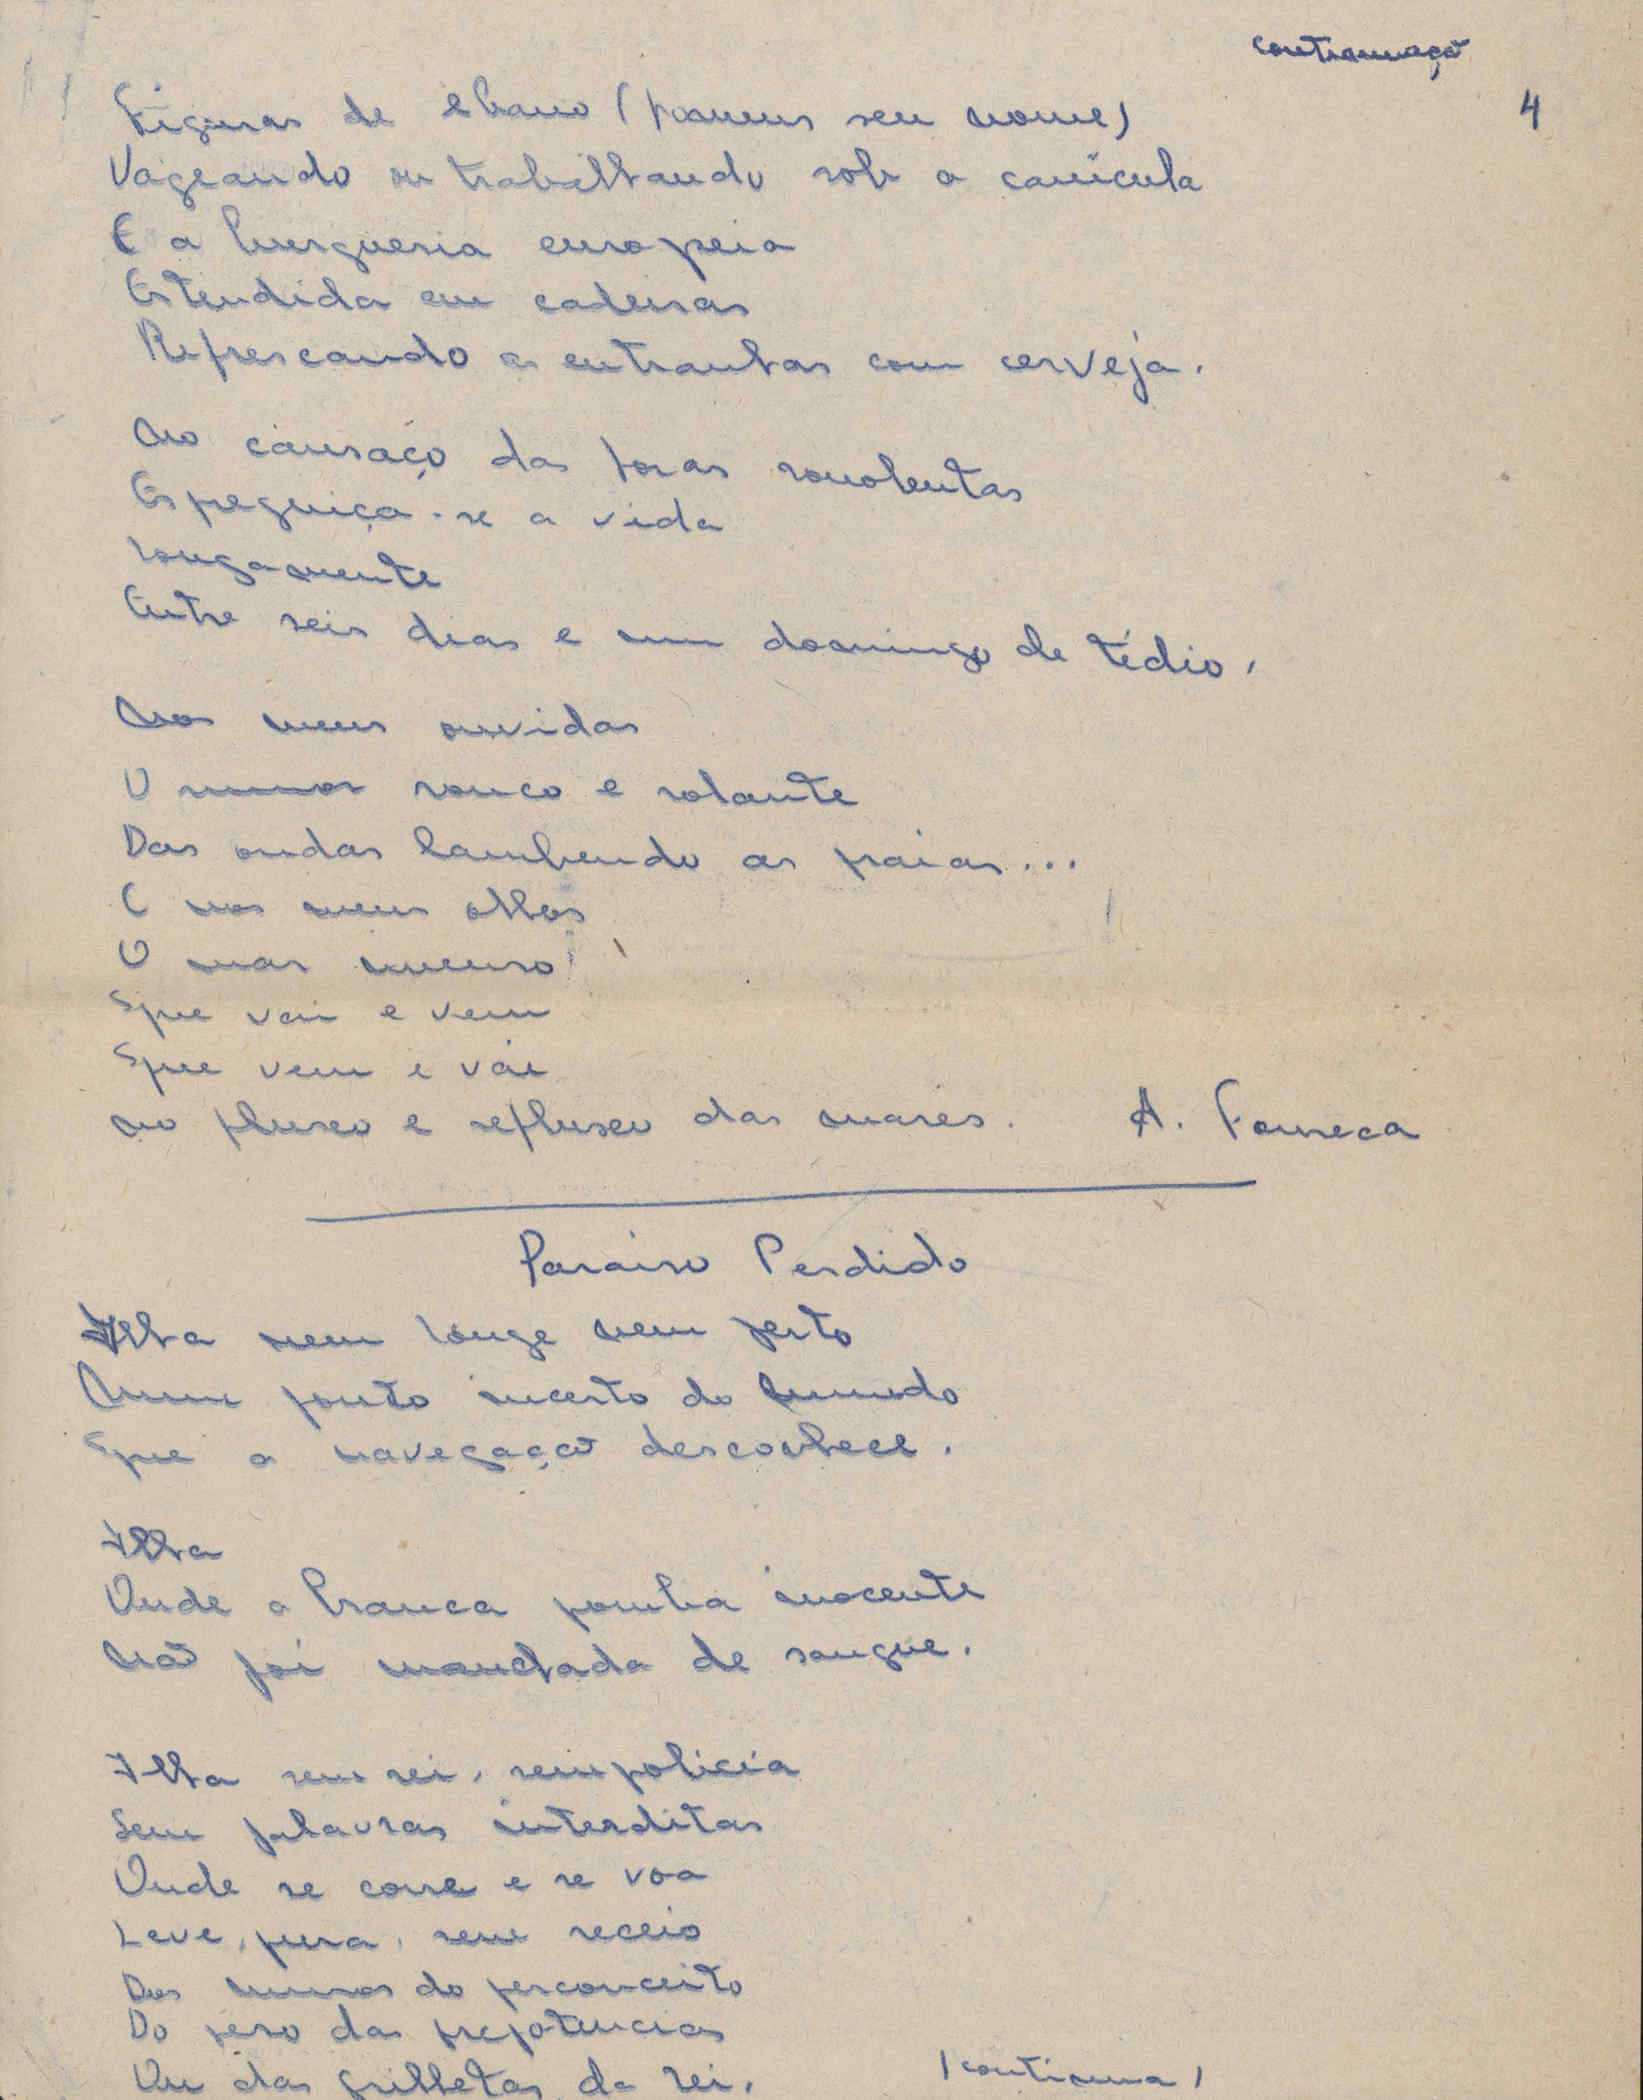 continuação
4
Figuras de ébano (homens sem nome)
Vageando ou trabalhando sob a canícula
E a burguesia europeia
Estendida em cadeiras
Refrescando as entranhas com cerveja.
No cansaço das horas sonolentas
Espreguiça-se a vida
Longamente
Entre seis dias e um domingo de tédio.
Nos meus ouvidos
O rumor rouco e rolante
Das ondas lambendo as praias...
E nos meus olhos
O mar imenso
Que vai e vem
Que vem e vai
No fluxo e refluxo das marés. A. Fonseca
Paraíso Perdido
Ilha nem longe nem perto
Num ponto incerto do mundo
Que a navegação desconhece.
Ilha
Onde a branca pomba inocente
Não foi manchada de sangue.
Ilha sem rei, sem polícia
Sem palavras interditas
Onde se corre e se voa
Leve, pura, sem receio
Dos muros do perconceito
Do peso das prepotencias
Ou das grilhetas da lei.
/continua/